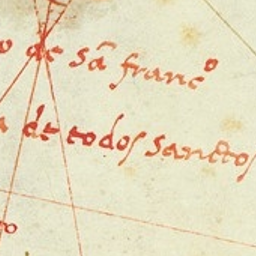 o de sã franc^o
a de todos sanctos
ro